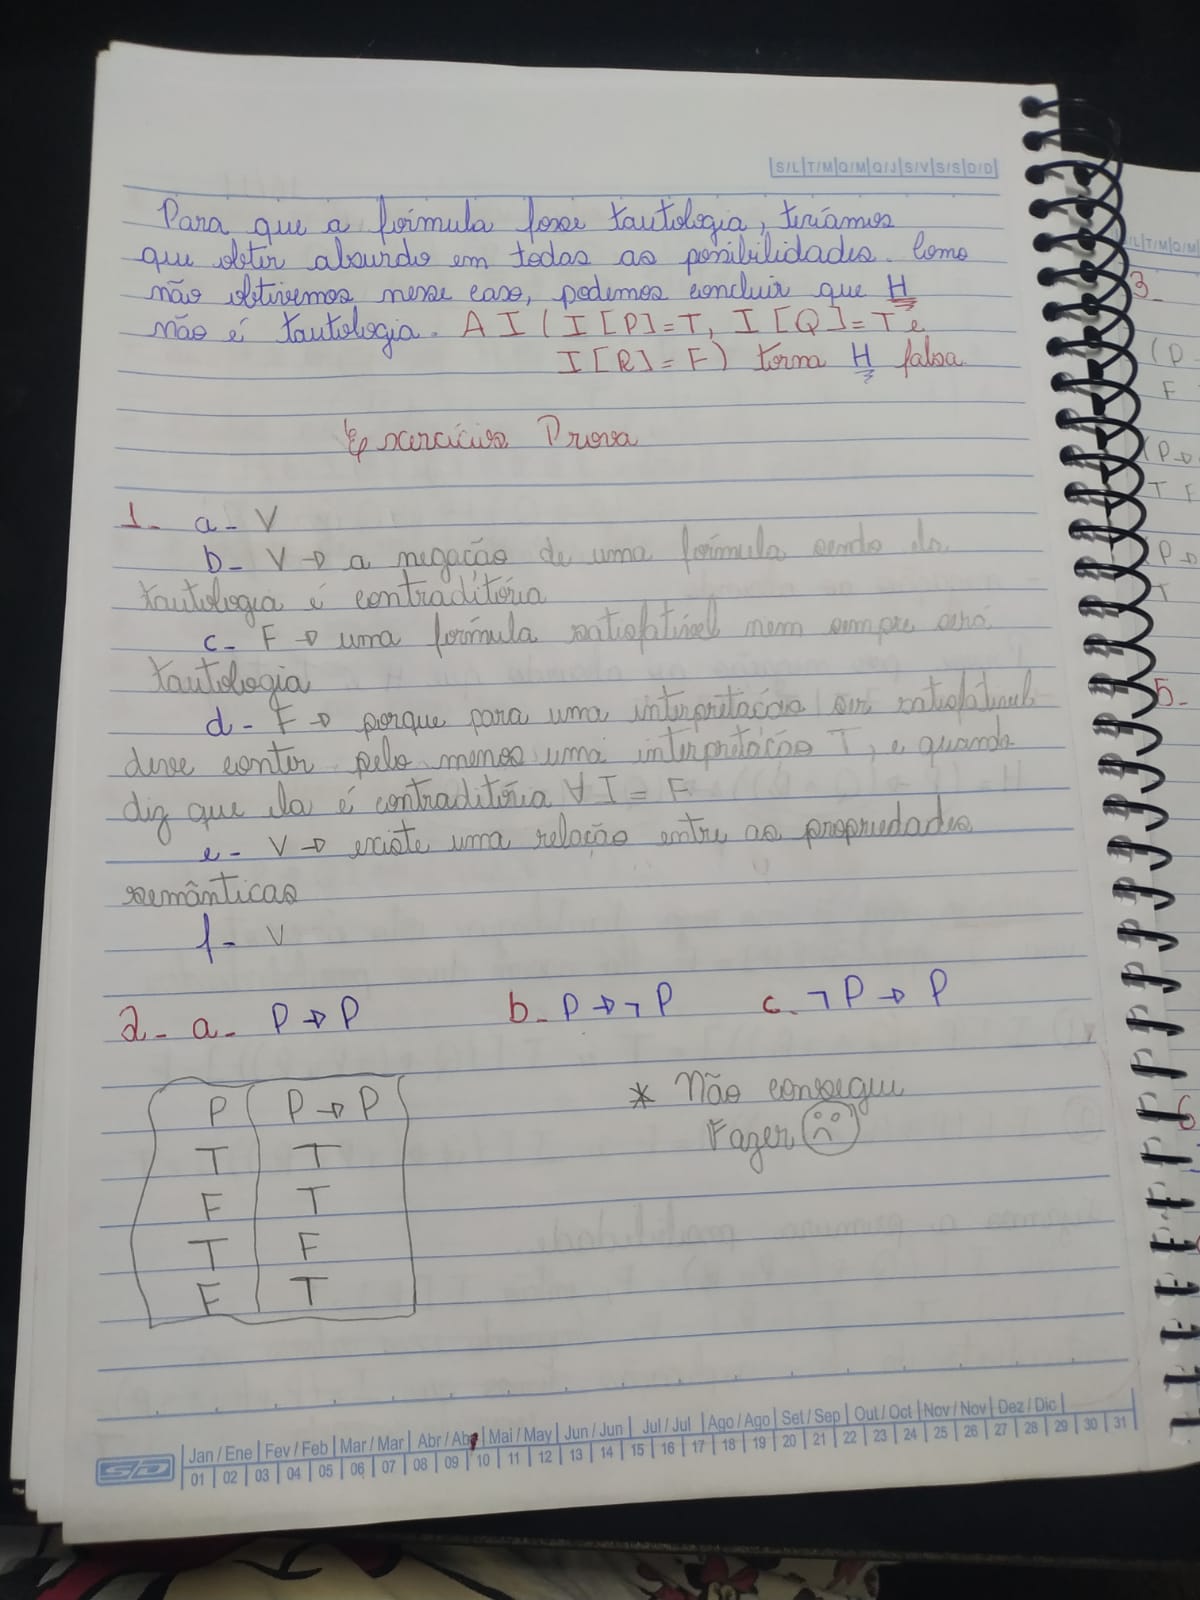 S/L|T/M|Q/M|Q/J|S/V|S/S|D/D
Para que a fórmula fosse tautologia, teríamos
que obter absurdo em todas as possibilidades. Como
não obtivemos nesse caso, podemos concluir que H
não é tautologia. A I ( I [P]=T, I [Q]=T e
I [R] = F) torna H falsa.
Exercícios Prova
1- a- V
b- V → a negação de uma fórmula sendo ela
tautologia é contraditória
c- F → uma fórmula satisfatível nem sempre será
tautologia
d- F → porque para uma interpretação ser satisfatível
deve conter pelo menos uma interpretação T, e quando
diz que ela é contraditória ∀ I = F
e- V → existe uma relação entre as propriedades
semânticas
f- V
2- a- P → P b- P → ¬ P c- ¬ P → P
P P → P
T T
F T
T F
F T
* Não consegui
Fazer
Jan / Ene | Fev / Feb | Mar / Mar | Abr / Abr | Mai / May | Jun / Jun | Jul / Jul | Ago / Ago | Set / Sep | Out / Oct | Nov / Nov | Dez / Dic
SD 01 | 02 | 03 | 04 | 05 | 06 | 07 | 08 | 09 | 10 | 11 | 12 | 13 | 14 | 15 | 16 | 17 | 18 | 19 | 20 | 21 | 22 | 23 | 24 | 25 | 26 | 27 | 28 | 29 | 30 | 31
/L|T/M|Q/M
3-
(P
F
(P →
T F
P →
T
5-
6